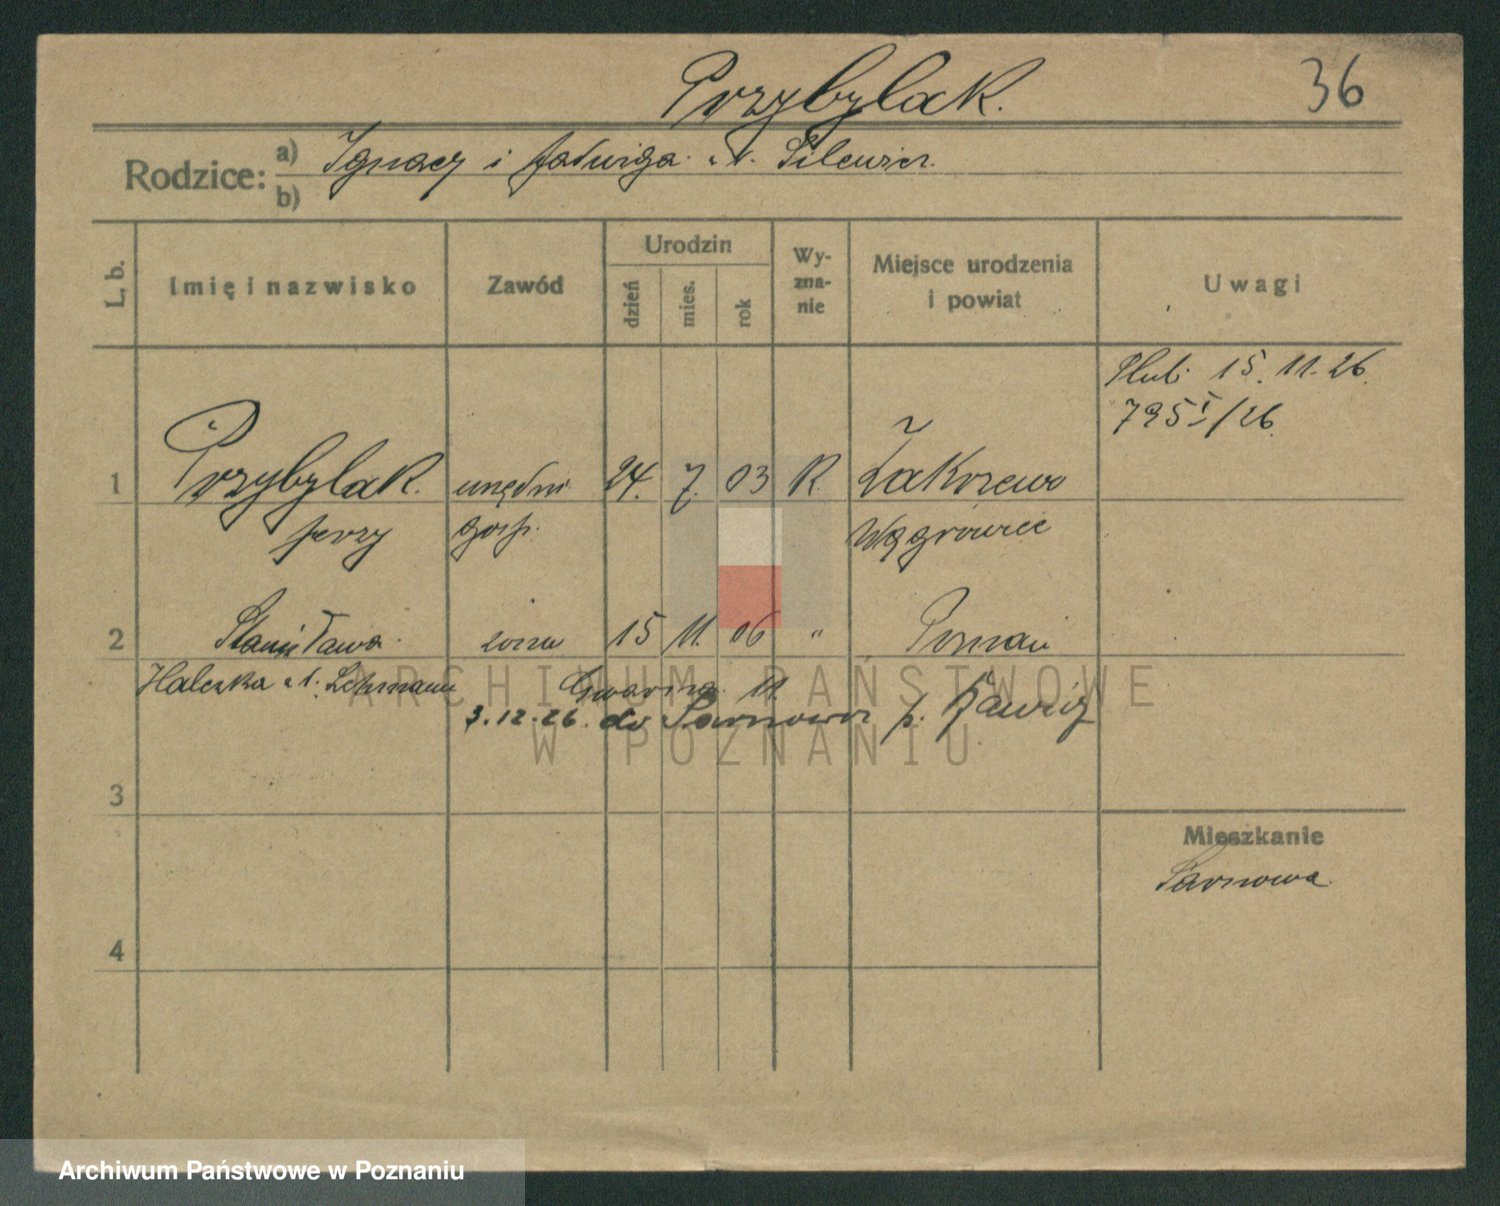 Przybylak.
36
Rodzice:
a) Ignacy i Jadwiga
b)
L. b.
Imię i nazwisko
Zawód
Urodzin
dzień
mies.
rok
Wy-
zna-
nie
Miejsce urodzenia
i powiat
Uwagi
Ślub 15. 11. 26.
795 I/26.
1 Przybylak. urzędni 24. 7. 03 R. Zakrzewo
Jerzy gosp. Wągrowiec
2 Stanisława żona 15 11. 06 " Poznań
Halszka Lehmann Gwarna 11.
3.12.26. do p. Rawicz
3
4
Mieszkanie
Sarnowa.
ARCHIWUM PAŃSTWOWE
W POZNANIU
Archiwum Państwowe w Poznaniu